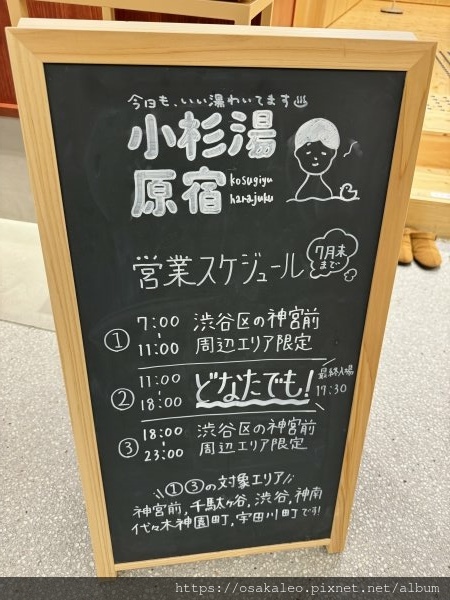 今日も、いい湯わいてます♨
小杉湯
原宿
kosugiyu
harajuku
営業スケジュール
7月末
まで
① 7:00 - 11:00 渋谷区の神宮前
周辺エリア限定
② 11:00 - 18:00 どなたでも!
最終入場
17:30
③ 18:00 - 23:00 渋谷区の神宮前
周辺エリア限定
\\①③の対象エリア//
神宮前,千駄ヶ谷,渋谷,神南
代々木神園町,宇田川町です!
https://osakaleo.pixnet.net/album